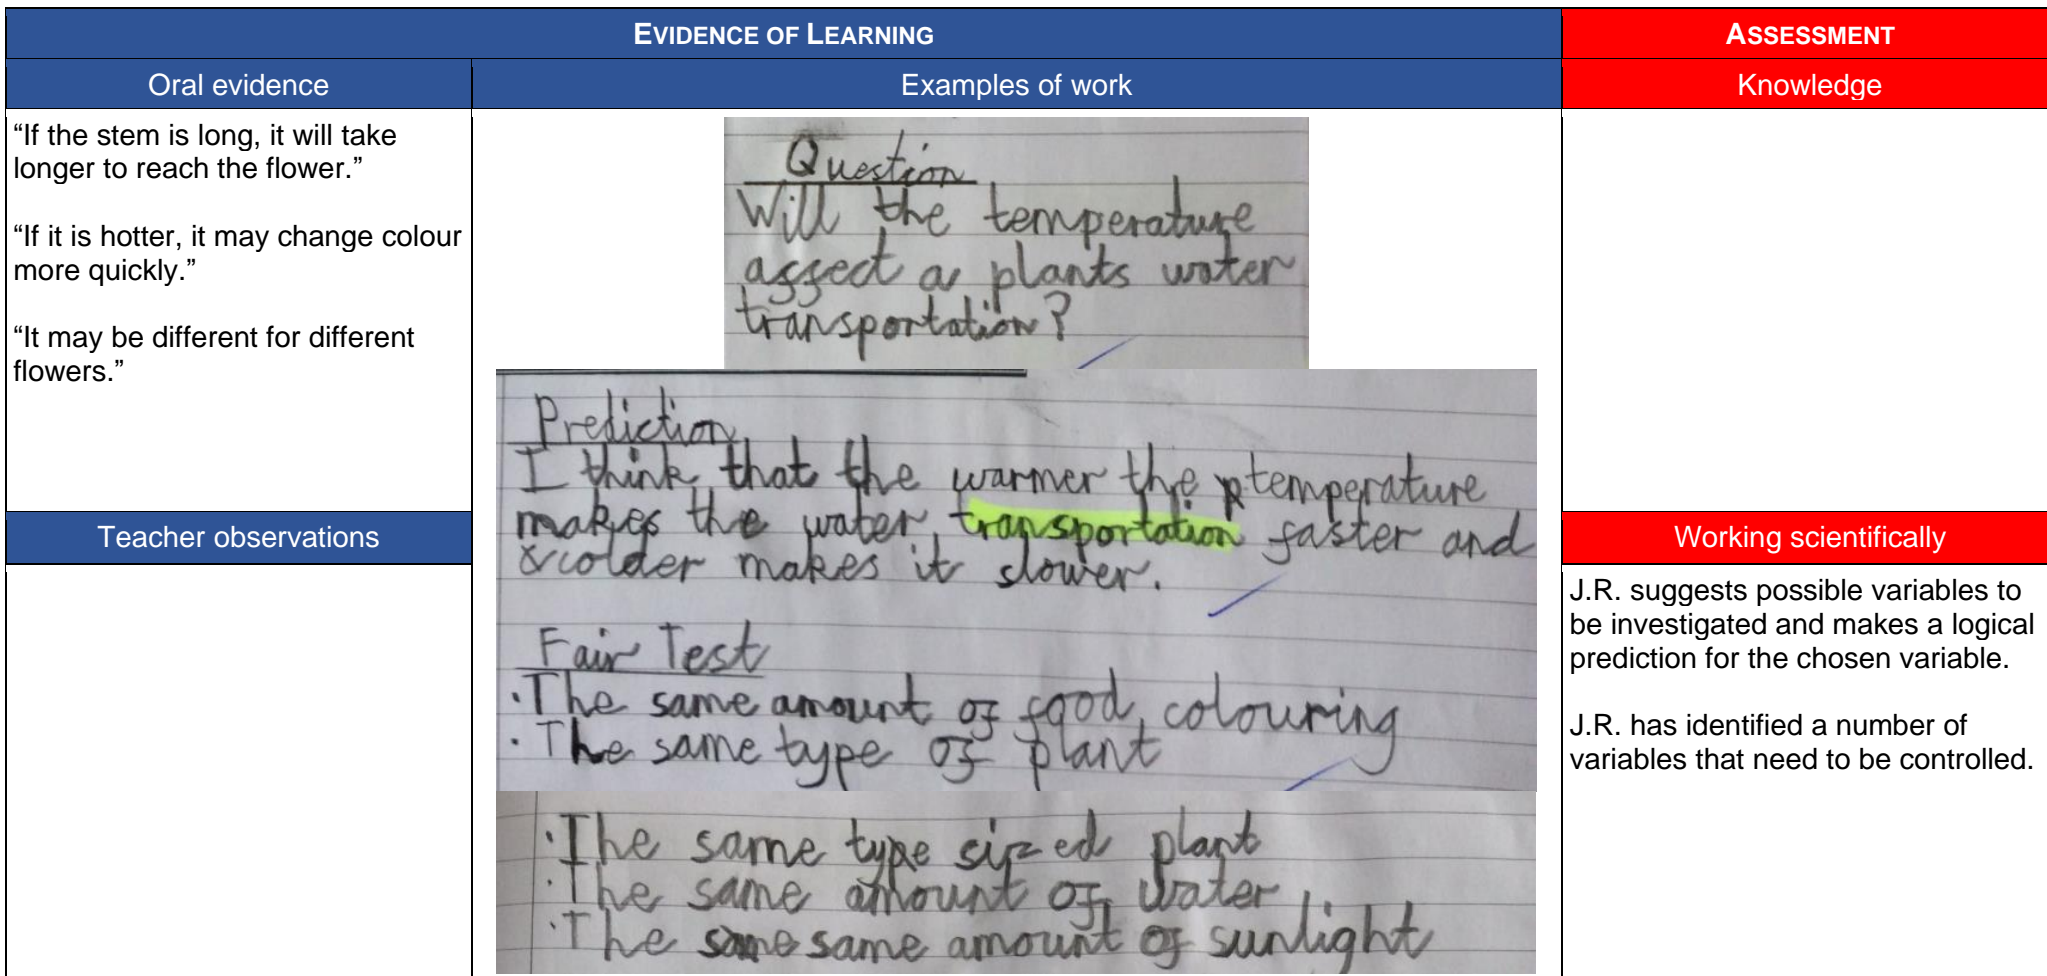 EVIDENCE OF LEARNING
ASSESSMENT
Oral evidence
Examples of work
Knowledge
“If the stem is long, it will take
longer to reach the flower.”
“If it is hotter, it may change colour
more quickly.”
“It may be different for different
flowers.”
Teacher observations
Question
Will the temperature
affect a plants water
transportation?
Prediction
I think that the warmer the temperature
makes the water transportation faster and
colder makes it slower.
Fair Test
· The same amount of food colouring
· The same type of plant
· The same type sized plant
· The same amount of water
· The same same amount of sunlight
Working scientifically
J.R. suggests possible variables to
be investigated and makes a logical
prediction for the chosen variable.
J.R. has identified a number of
variables that need to be controlled.